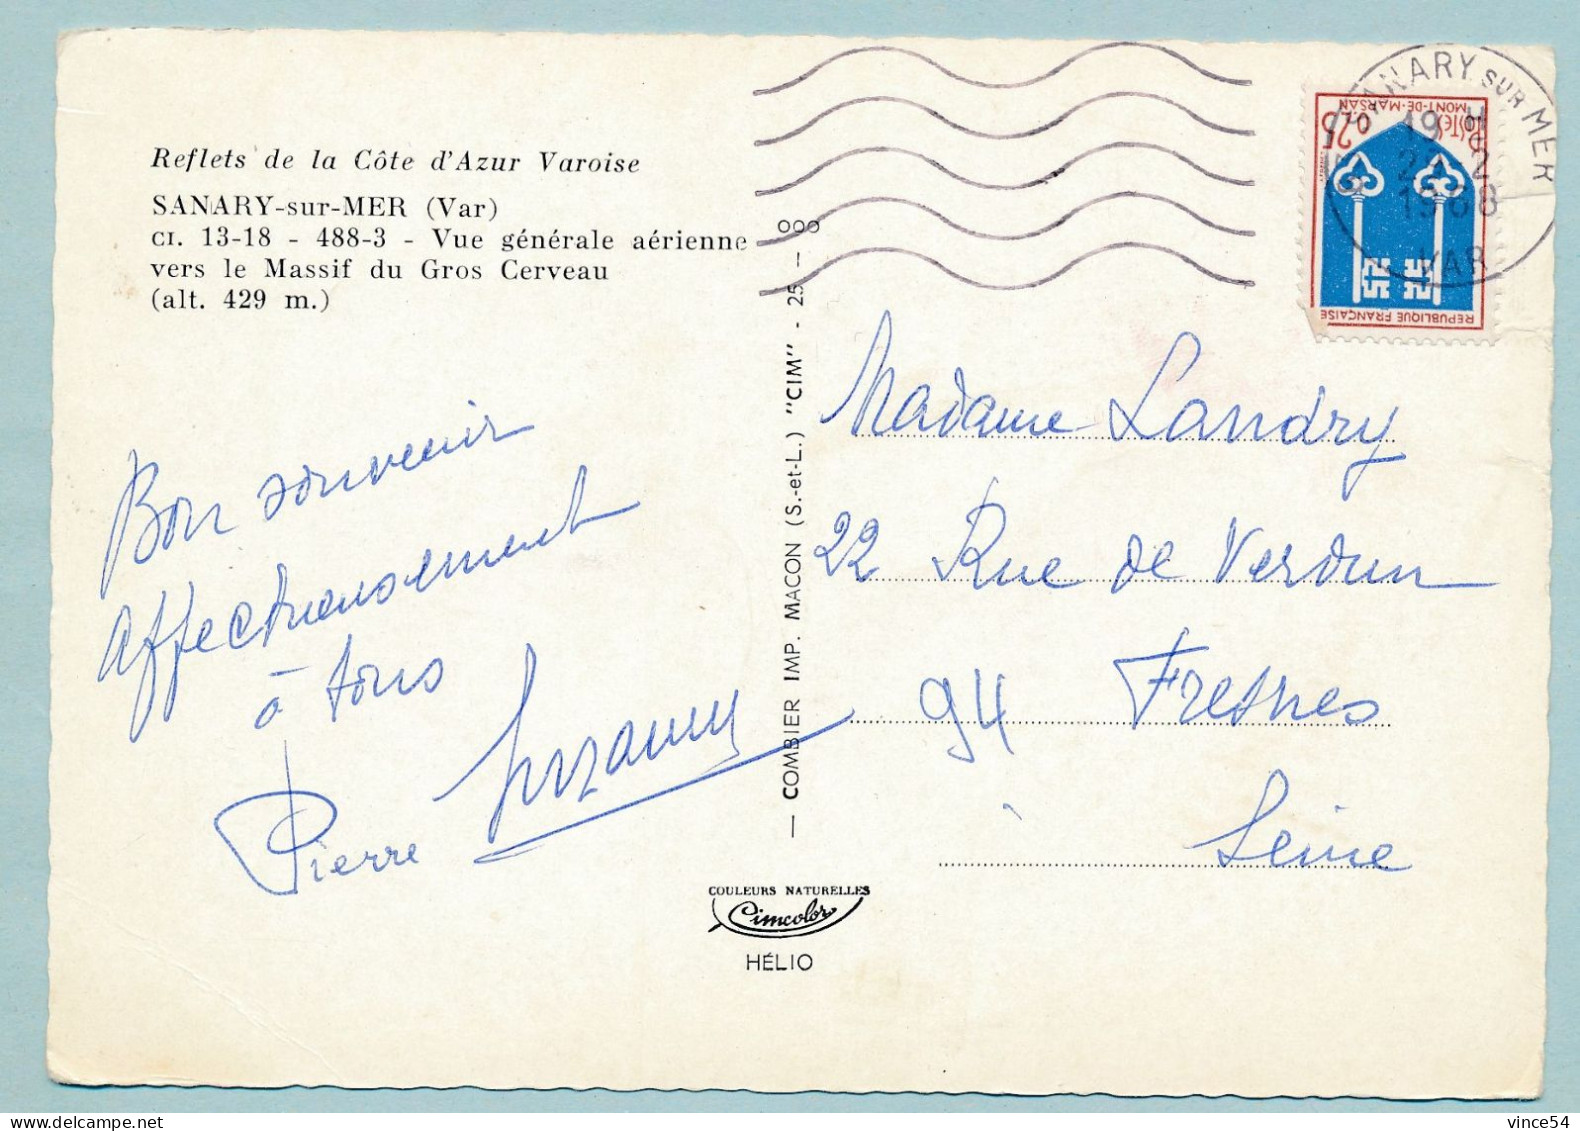 Reflets de la Côte d'Azur Varoise
SANARY-sur-MER (Var)
CI. 13-18 - 488-3 - Vue générale aérienne
vers le Massif du Gros Cerveau
(alt. 429 m.)
Bon souvenir
affectueusement
à tous
Pierre Suzanne
— COMBIER IMP. MACON (S.-et-L.) "CIM" - 25 — 000
COULEURS NATURELLES
Cimcolor
HÉLIO
SANARY SUR MER
19 H
2
1968
VAR
MONT-DE-MARSAN
POSTES 0,25
REPUBLIQUE FRANÇAISE
Madame Landry
22 Rue de Verdun
94 Fresnes
Seine
vince54